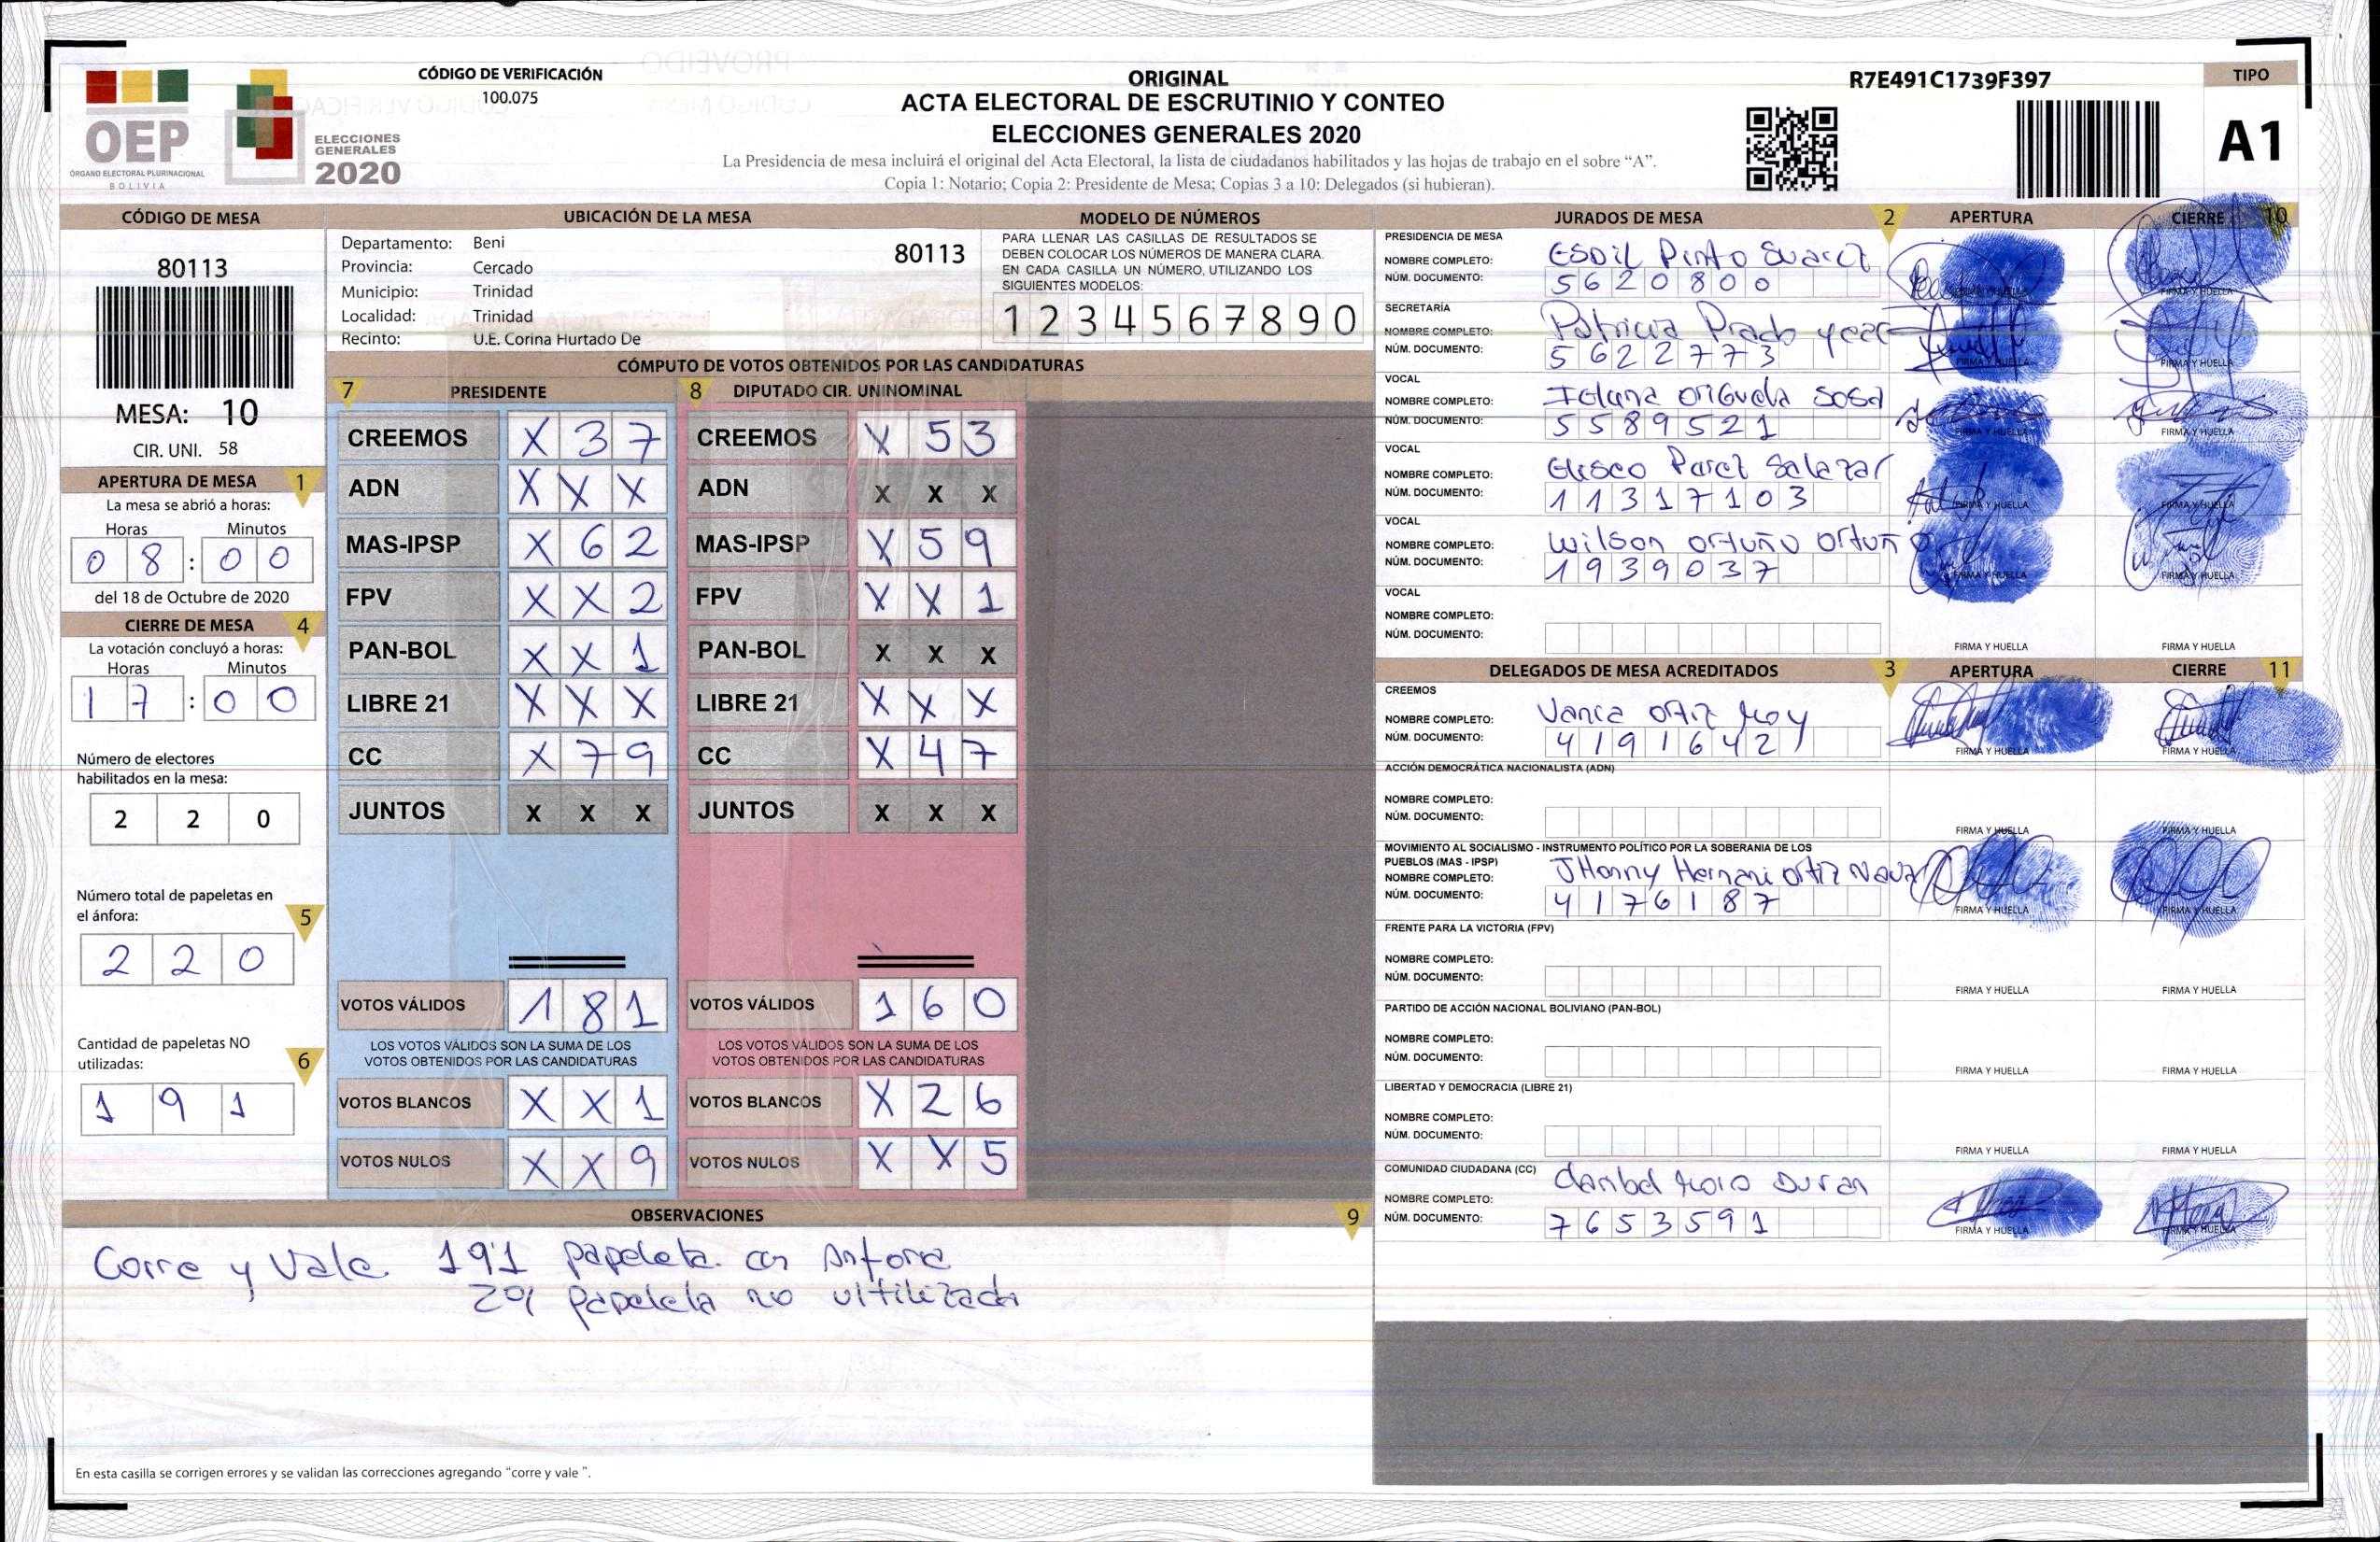 CÓDIGO DE VERIFICACIÓN
100.075
OEP
ÓRGANO ELECTORAL PLURINACIONAL
BOLIVIA
ELECCIONES
GENERALES
2020
ORIGINAL
ACTA ELECTORAL DE ESCRUTINIO Y CONTEO
ELECCIONES GENERALES 2020
La Presidencia de mesa incluirá el original del Acta Electoral, la lista de ciudadanos habilitados y las hojas de trabajo en el sobre “A”.
Copia 1: Notario; Copia 2: Presidente de Mesa; Copias 3 a 10: Delegados (si hubieran).
R7E491C1739F397
TIPO
A1
CÓDIGO DE MESA
80113
MESA: 10
CIR. UNI. 58
APERTURA DE MESA 1
La mesa se abrió a horas:
Horas Minutos
0 8 : 0 0
del 18 de Octubre de 2020
CIERRE DE MESA 4
La votación concluyó a horas:
Horas Minutos
1 7 : 0 0
Número de electores
habilitados en la mesa:
2 2 0
Número total de papeletas en
el ánfora: 5
2 2 0
Cantidad de papeletas NO
utilizadas: 6
1 9 1
UBICACIÓN DE LA MESA
Departamento: Beni 80113
Provincia: Cercado
Municipio: Trinidad
Localidad: Trinidad
Recinto: U.E. Corina Hurtado De
MODELO DE NÚMEROS
PARA LLENAR LAS CASILLAS DE RESULTADOS SE
DEBEN COLOCAR LOS NÚMEROS DE MANERA CLARA.
EN CADA CASILLA UN NÚMERO, UTILIZANDO LOS
SIGUIENTES MODELOS:
1 2 3 4 5 6 7 8 9 0
CÓMPUTO DE VOTOS OBTENIDOS POR LAS CANDIDATURAS
7 PRESIDENTE 8 DIPUTADO CIR. UNINOMINAL
CREEMOS X 3 7 CREEMOS X 5 3
ADN X X X ADN X X X
MAS-IPSP X 6 2 MAS-IPSP X 5 9
FPV X X 2 FPV X X 1
PAN-BOL X X 1 PAN-BOL X X X
LIBRE 21 X X X LIBRE 21 X X X
CC X 7 9 CC X 4 7
JUNTOS X X X JUNTOS X X X
VOTOS VÁLIDOS 1 8 1 VOTOS VÁLIDOS 1 6 0
LOS VOTOS VÁLIDOS SON LA SUMA DE LOS LOS VOTOS VÁLIDOS SON LA SUMA DE LOS
VOTOS OBTENIDOS POR LAS CANDIDATURAS VOTOS OBTENIDOS POR LAS CANDIDATURAS
VOTOS BLANCOS X X 1 VOTOS BLANCOS X 2 6
VOTOS NULOS X X 9 VOTOS NULOS X X 5
OBSERVACIONES 9
Corre y Vale 191 papeleta en Anfora
29 papeleta no ultilizada
En esta casilla se corrigen errores y se validan las correcciones agregando “corre y vale ”.
JURADOS DE MESA 2 APERTURA CIERRE 10
PRESIDENCIA DE MESA
NOMBRE COMPLETO: Esdil Pinto Suarez
NÚM. DOCUMENTO: 5620800 FIRMA Y HUELLA FIRMA Y HUELLA
SECRETARÍA
NOMBRE COMPLETO: Patricia Prado
NÚM. DOCUMENTO: 5622773 FIRMA Y HUELLA FIRMA Y HUELLA
VOCAL
NOMBRE COMPLETO: Sosa
NÚM. DOCUMENTO: 5589521 FIRMA Y HUELLA FIRMA Y HUELLA
VOCAL
NOMBRE COMPLETO: Perez Salazar
NÚM. DOCUMENTO: 11317103 FIRMA Y HUELLA FIRMA Y HUELLA
VOCAL
NOMBRE COMPLETO: Wilson Ortuño Ortuño
NÚM. DOCUMENTO: 1939037 FIRMA Y HUELLA FIRMA Y HUELLA
VOCAL
NOMBRE COMPLETO:
NÚM. DOCUMENTO: FIRMA Y HUELLA FIRMA Y HUELLA
DELEGADOS DE MESA ACREDITADOS 3 APERTURA CIERRE 11
CREEMOS
NOMBRE COMPLETO: Vania Ortiz
NÚM. DOCUMENTO: 4191642 FIRMA Y HUELLA FIRMA Y HUELLA
ACCIÓN DEMOCRÁTICA NACIONALISTA (ADN)
NOMBRE COMPLETO:
NÚM. DOCUMENTO: FIRMA Y HUELLA FIRMA Y HUELLA
MOVIMIENTO AL SOCIALISMO - INSTRUMENTO POLÍTICO POR LA SOBERANIA DE LOS
PUEBLOS (MAS - IPSP)
NOMBRE COMPLETO: JHonny Hernani Ortiz
NÚM. DOCUMENTO: 4176187 FIRMA Y HUELLA FIRMA Y HUELLA
FRENTE PARA LA VICTORIA (FPV)
NOMBRE COMPLETO:
NÚM. DOCUMENTO: FIRMA Y HUELLA FIRMA Y HUELLA
PARTIDO DE ACCIÓN NACIONAL BOLIVIANO (PAN-BOL)
NOMBRE COMPLETO:
NÚM. DOCUMENTO: FIRMA Y HUELLA FIRMA Y HUELLA
LIBERTAD Y DEMOCRACIA (LIBRE 21)
NOMBRE COMPLETO:
NÚM. DOCUMENTO: FIRMA Y HUELLA FIRMA Y HUELLA
COMUNIDAD CIUDADANA (CC)
NOMBRE COMPLETO: Duran
NÚM. DOCUMENTO: 7653591 FIRMA Y HUELLA FIRMA Y HUELLA